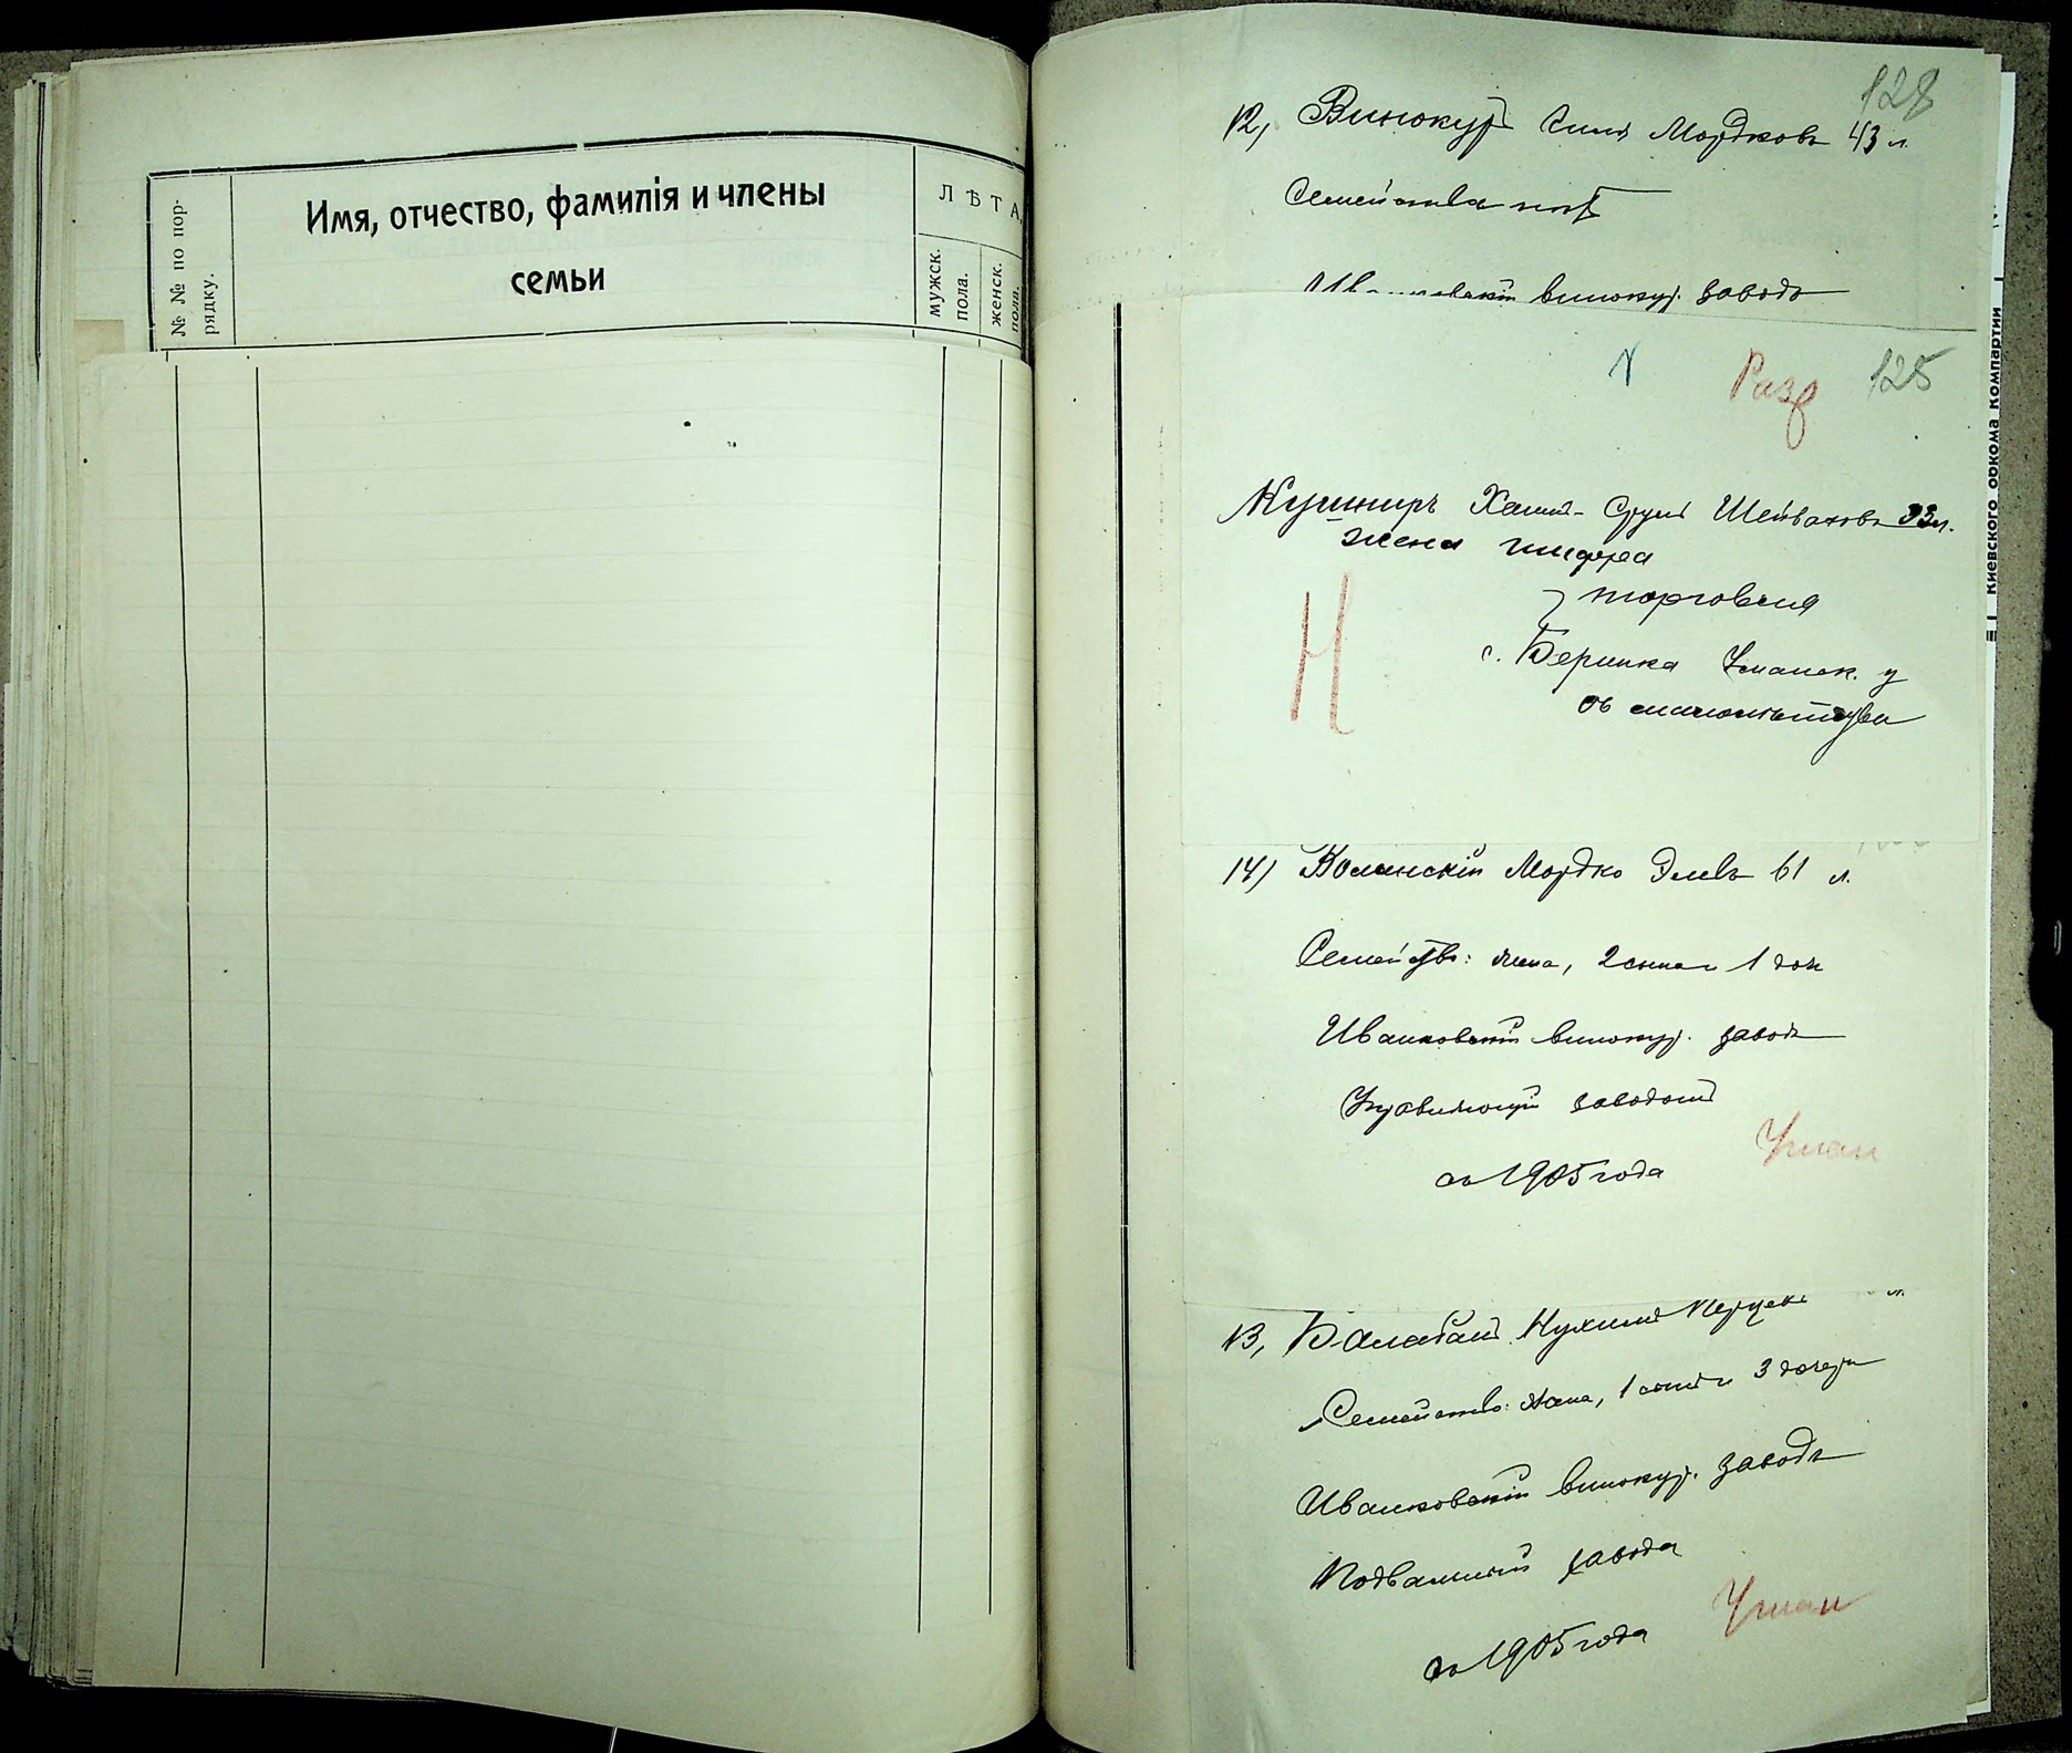 № № по пор-
рядку.
Имя, отчество, фамилія и члены
семьи
ЛѢТА.
мужск.
пола.
женск.
пола.
128
12, Винокуръ Мордковъ 43 л.
Семейства нѣтъ
Иваньковскій винокур. заводъ
Разр 125
Кушниръ Хаимъ-Сруль 33 л.
жена
торговля
с. Умапск. у
съ малолѣтства
Н
14) Волинскій Мордко Элевъ 61 л.
Семейство: жена, 2 сына и 1 доч
Иваньковскій винокур. заводъ
Управляющій заводомъ
съ 1905 года
Уман
13, Балабанъ Нухимъ л.
Семейство: жена, 1 сынъ и 3 дочери
Иваньковскій винокур. заводъ
Подвальный завода
съ 1905 года
Уман
Киевского обкома Компартии